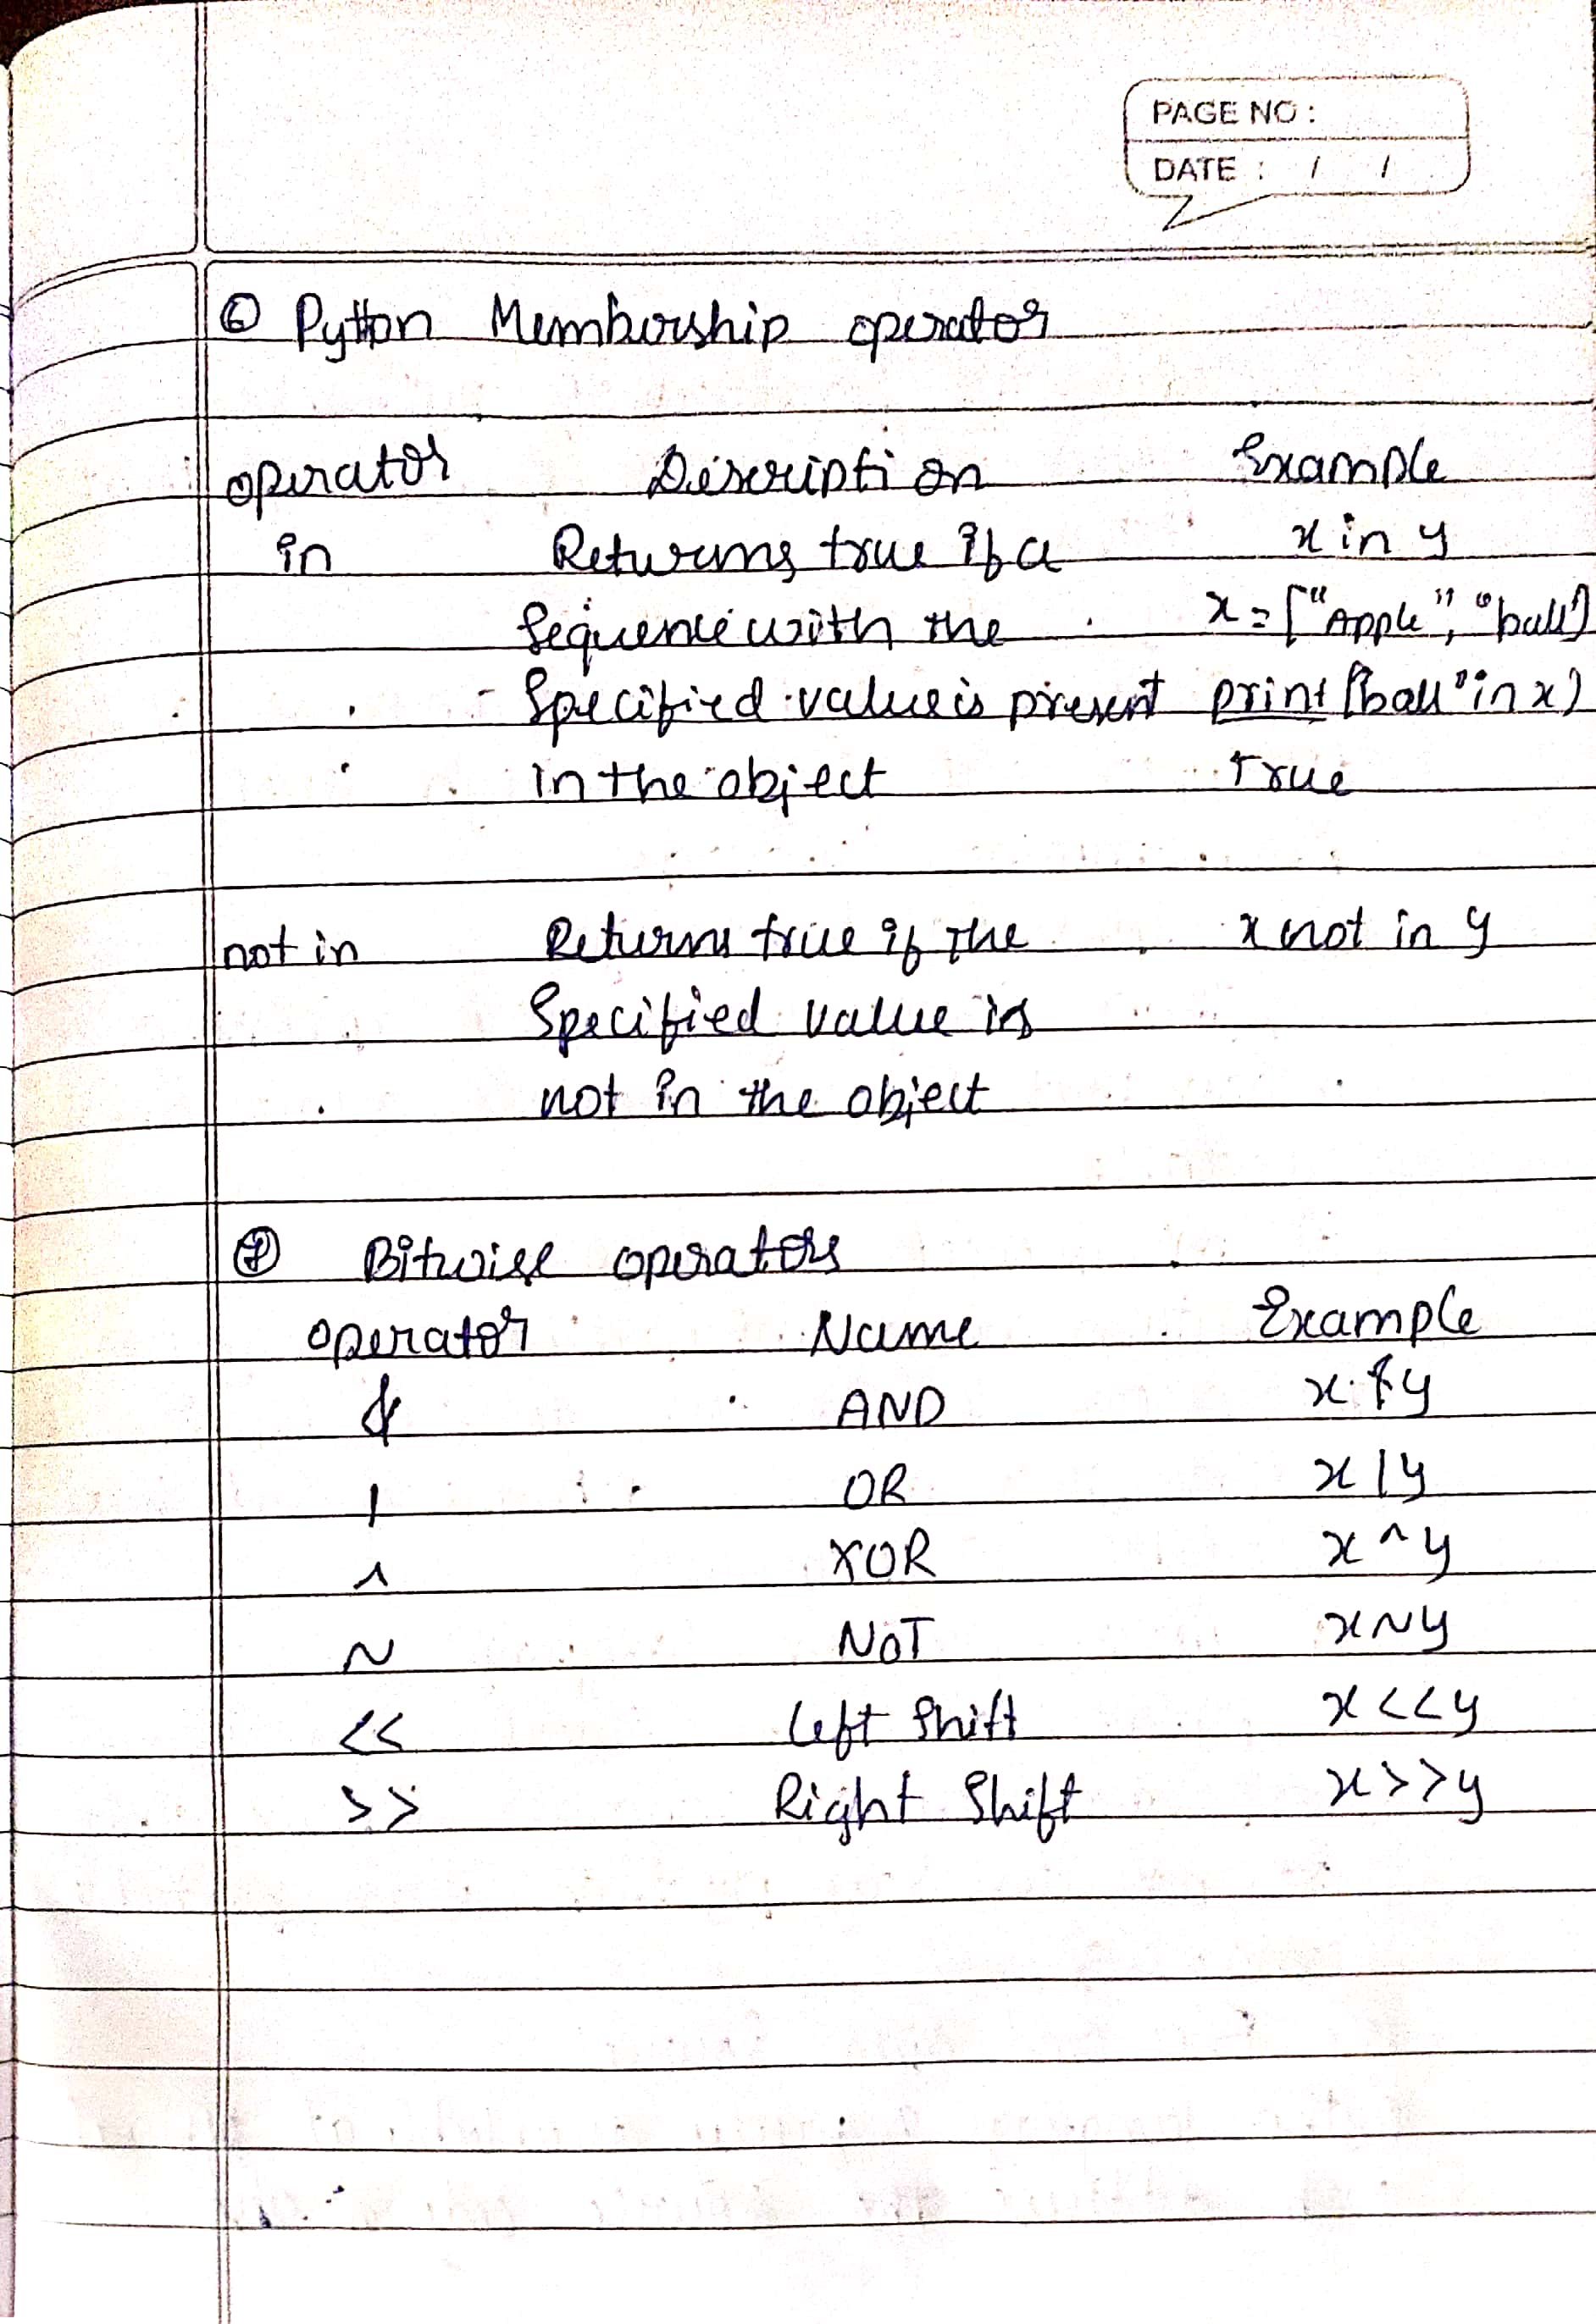 PAGE NO :
DATE : / /
⑥ Python Membership operator
operator Description Example
in Returns true if a x in y
Sequence with the x = ["Apple", "ball"]
Specified value is present print ("ball" in x)
in the object True
not in Returns true if the x not in y
Specified value is
not in the object
⑦ Bitwise operators
operator Name Example
& AND x & y
| OR x | y
^ XOR x ^ y
~ NOT x ~ y
<< Left Shift x << y
>> Right Shift x >> y